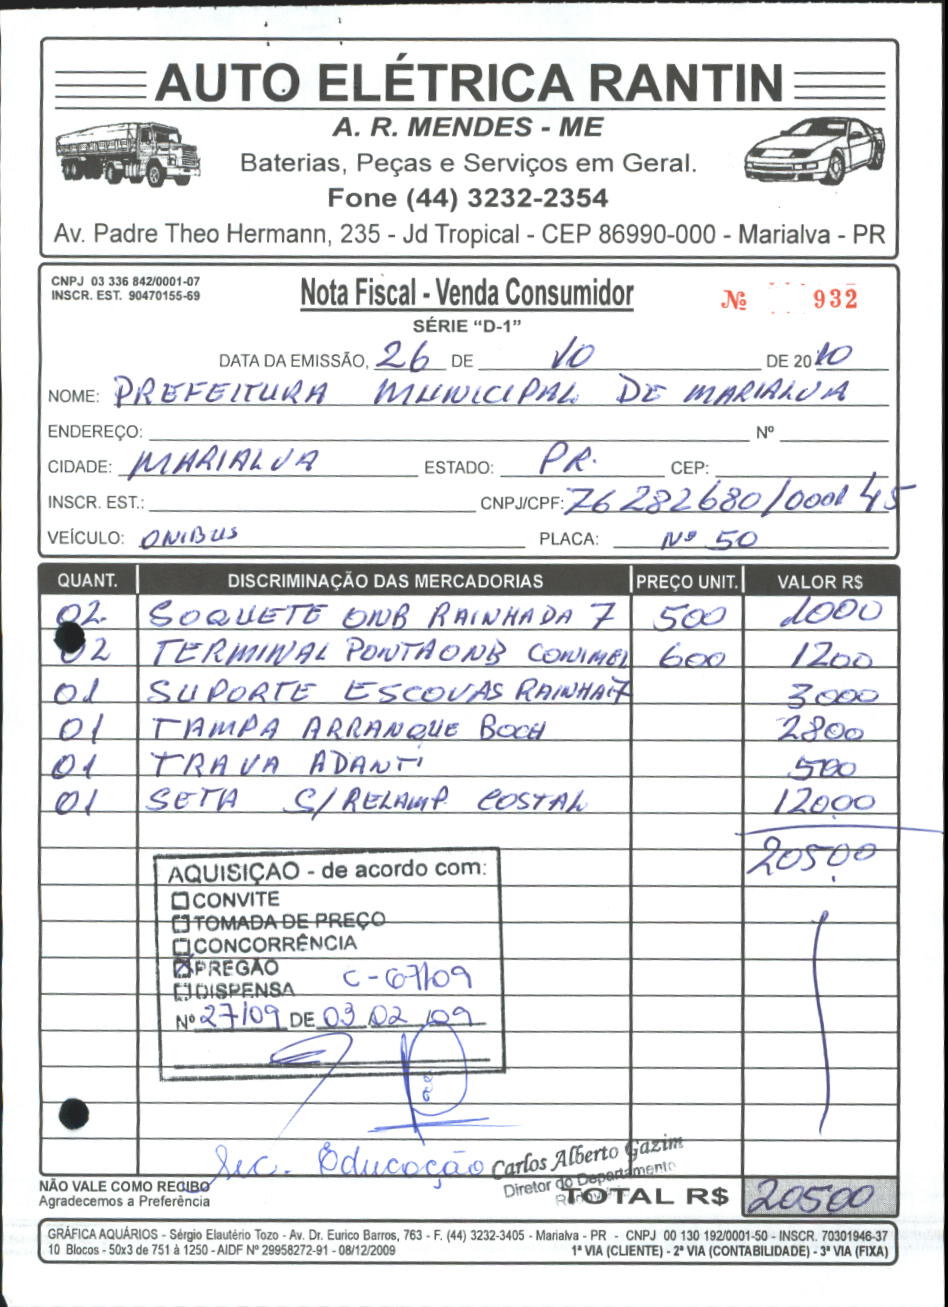 AUTO ELÉTRICA RANTIN
A. R. MENDES - ME
Baterias, Peças e Serviços em Geral.
Fone (44) 3232-2354
Av. Padre Theo Hermann, 235 - Jd Tropical - CEP 86990-000 - Marialva - PR
CNPJ 03 336 842/0001-07
INSCR. EST. 90470155-69
Nota Fiscal - Venda Consumidor
Nº 932
SÉRIE "D-1"
DATA DA EMISSÃO, 26 DE 10 DE 2010
NOME: PREFEITURA MUNICIPAL DE MARIALVA
ENDEREÇO: Nº
CIDADE: MARIALVA ESTADO: PR. CEP:
INSCR. EST.: CNPJ/CPF: 76282680/0001 45
VEÍCULO: ONIBUS PLACA: Nº 50
QUANT. DISCRIMINAÇÃO DAS MERCADORIAS PREÇO UNIT. VALOR R$
02 SOQUETE ONB RAINHADA 7 500 1000
02 TERMINAL PONTAONB CONIMEL 600 1200
01 SUPORTE ESCOVAS RAINHA7 3000
01 TAMPA ARRANQUE BOCH 2800
01 TRAVA ADANTI 500
01 SETA C/RELAMP COSTAL 12000
20500
AQUISIÇÃO - de acordo com:
CONVITE
TOMADA DE PREÇO
CONCORRÊNCIA
PREGÃO C-67/09
DISPENSA
Nº 27/09 DE 03 02 09
Sec. Educação
Carlos Alberto Gazim
Diretor do Departamento
NÃO VALE COMO RECIBO
Agradecemos a Preferência
TOTAL R$ 20500
GRÁFICA AQUÁRIOS - Sérgio Elautério Tozo - Av. Dr. Eurico Barros, 763 - F. (44) 3232-3405 - Marialva - PR - CNPJ 00 130 192/0001-50 - INSCR. 70301946-37
10 Blocos - 50x3 de 751 à 1250 - AIDF Nº 29958272-91 - 08/12/2009 1ª VIA (CLIENTE) - 2ª VIA (CONTABILIDADE) - 3ª VIA (FIXA)